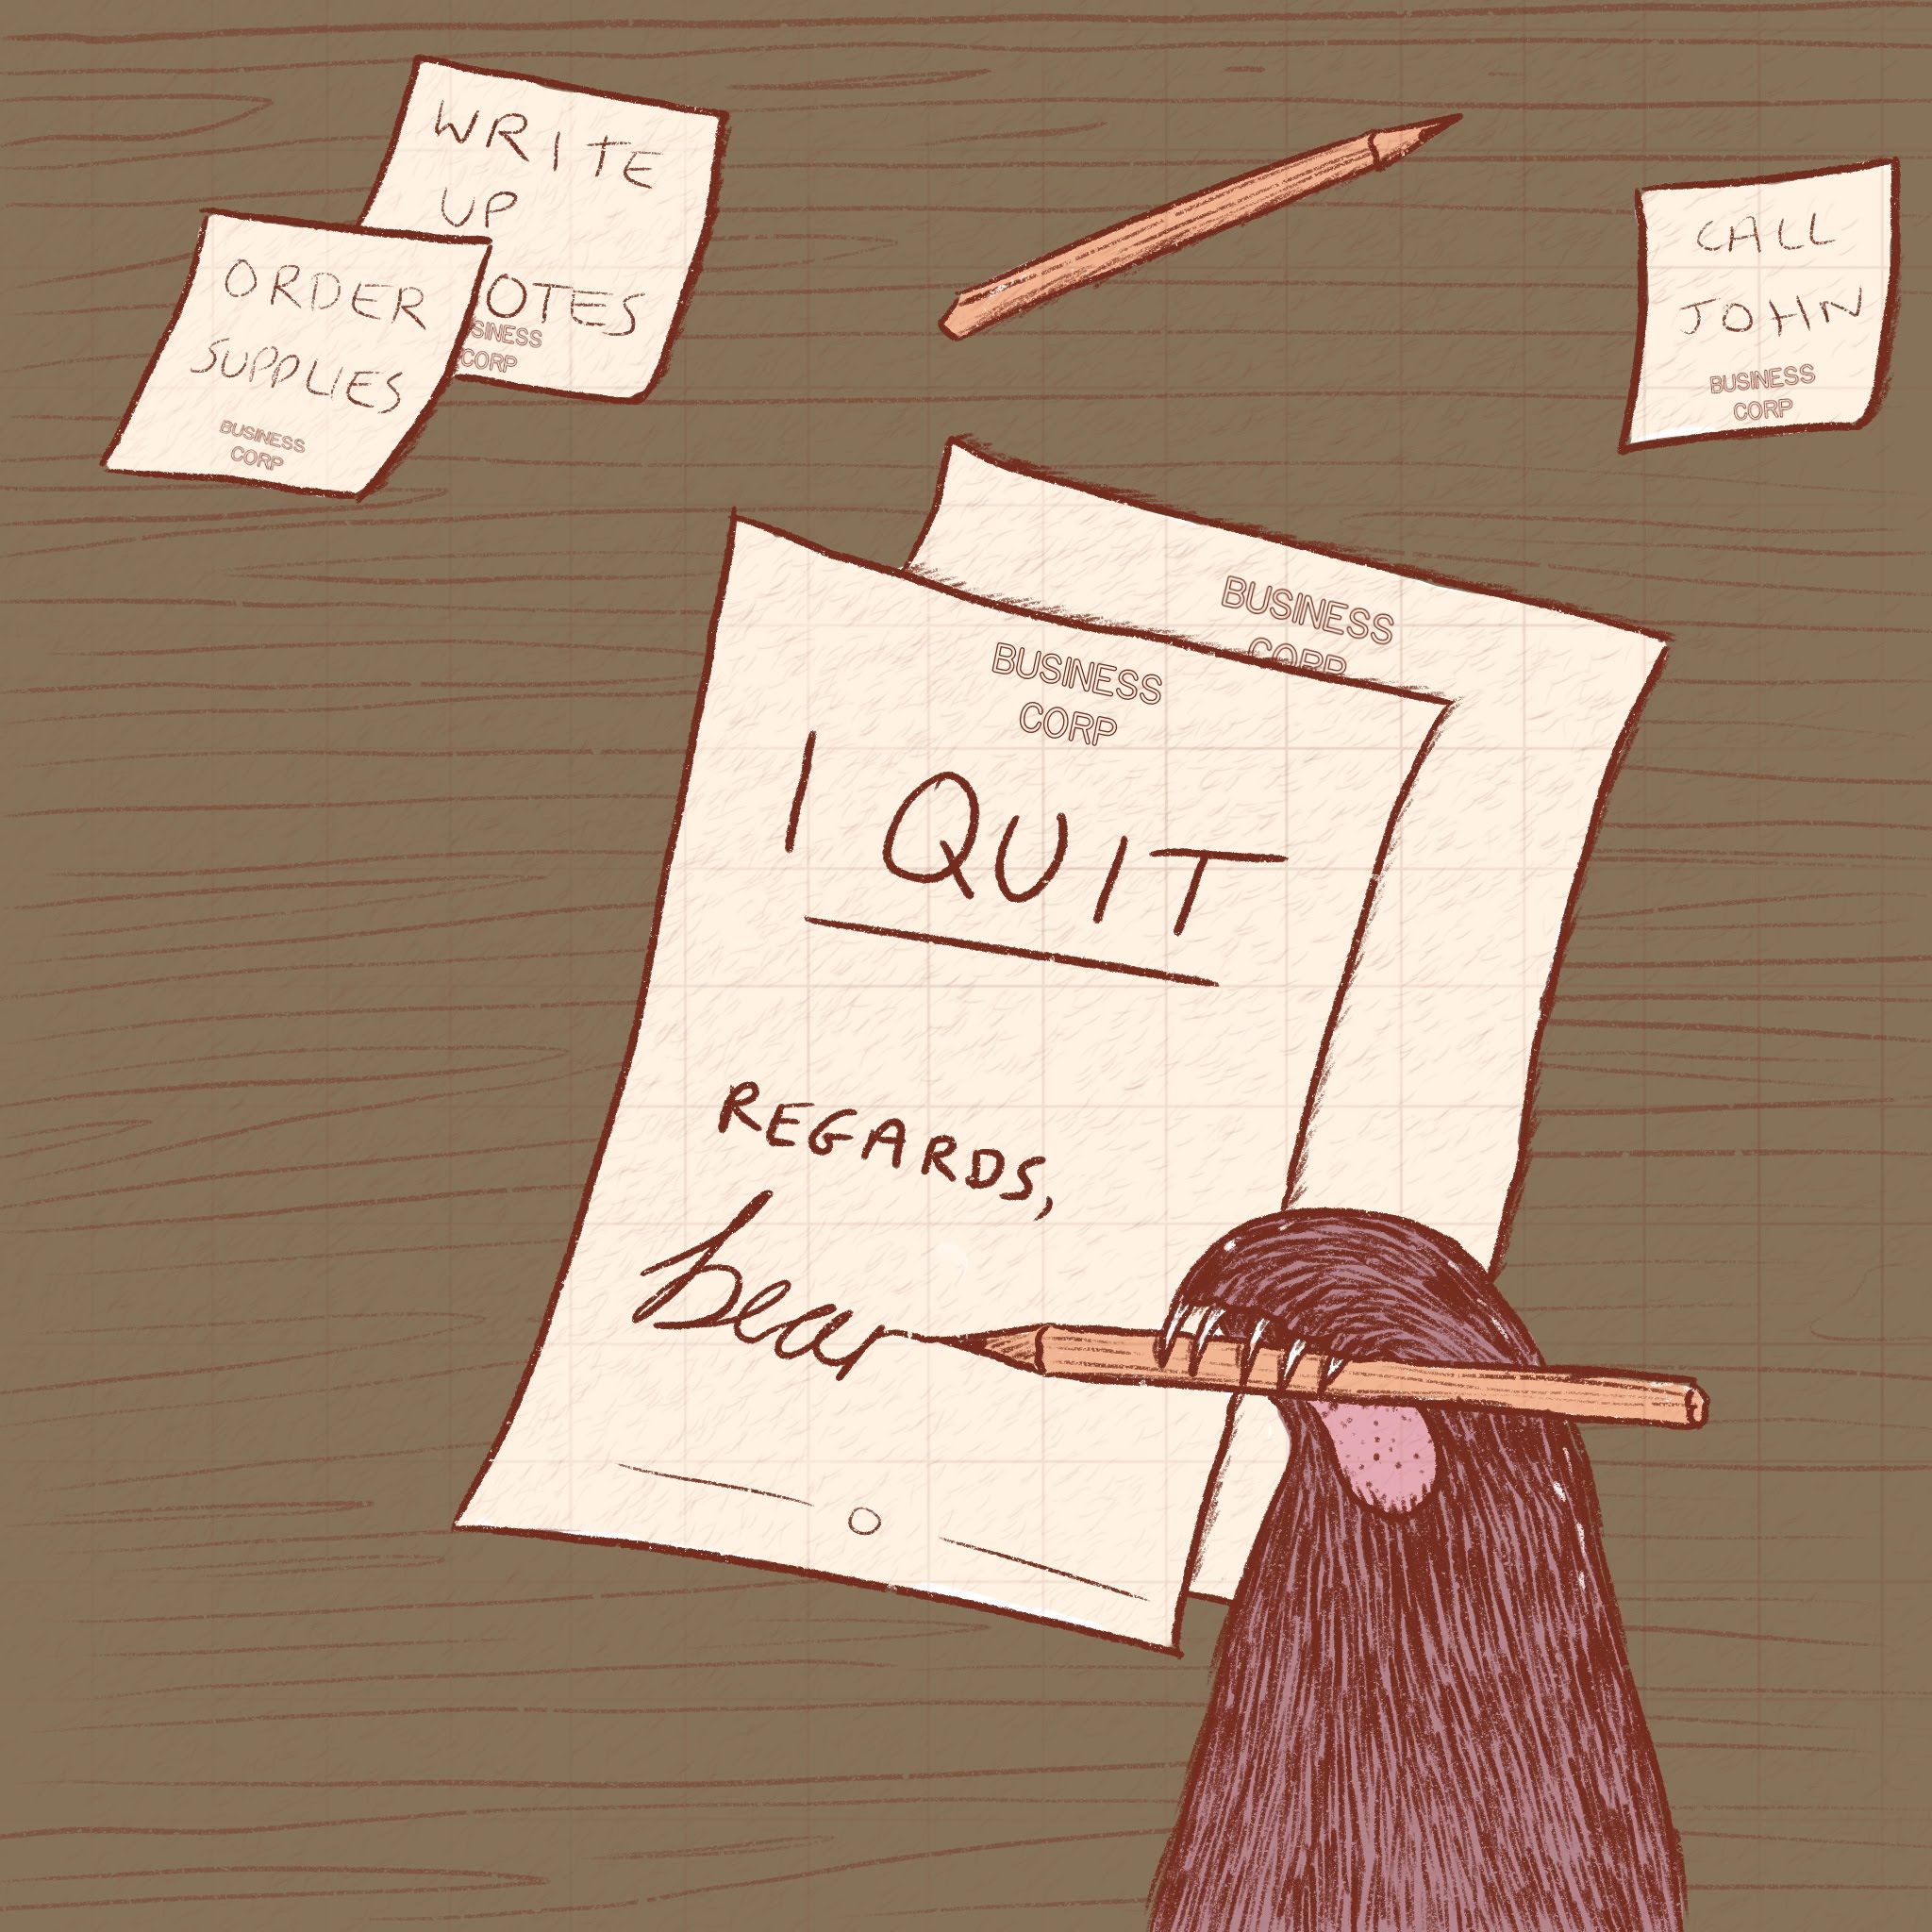 WRITE
UP
OTES
SINESS
CORP
ORDER
SUPPLIES
BUSINESS
CORP
CALL
JOHN
BUSINESS
CORP
BUSINESS
CORP
BUSINESS
CORP
I QUIT
REGARDS,
bear